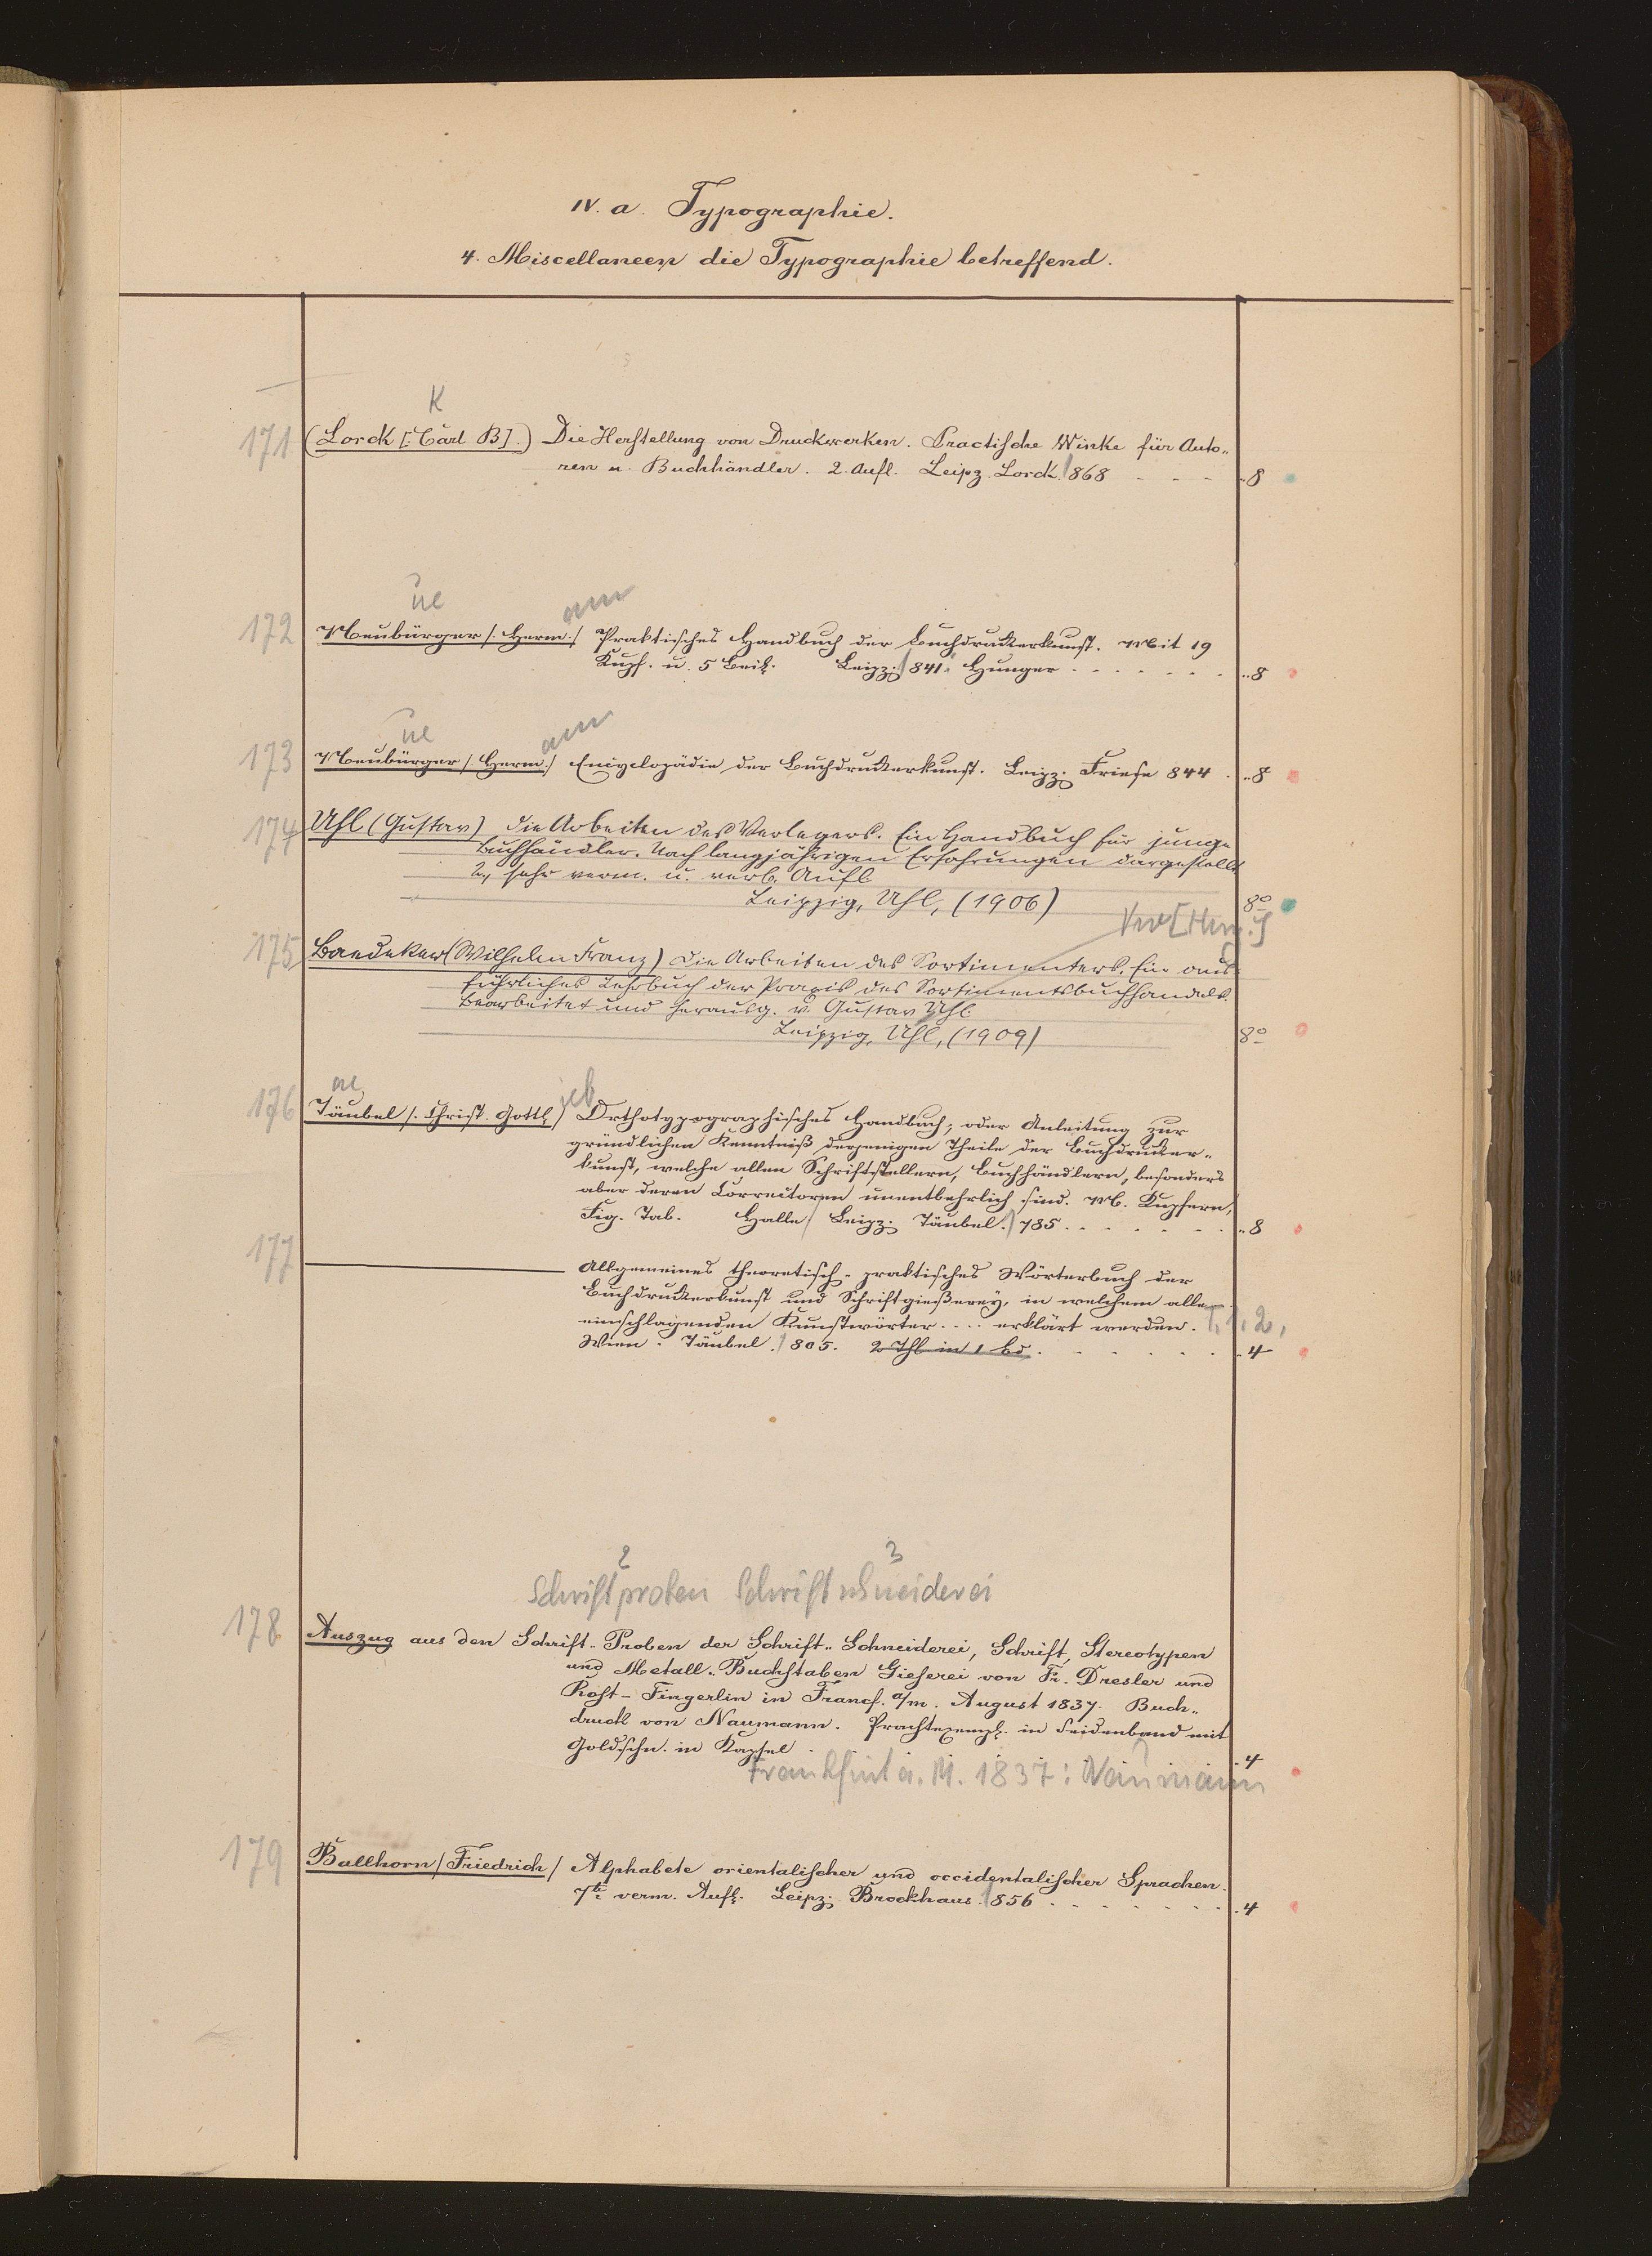 IV. a. Typographie.
4. Miscellaneen die Typographie betreffend.
K
171 (Lorck [: Carl B].) Die Herstellung von Druckwerken. Practische Winke für Auto-
ren u. Buchhändler. 2. Aufl. Leipz. Lorck. 1868 - - - - 8
ue
am
172 Neubürger /: Herm :/ Praktisches Handbuch der Buchdruckerkunst. Mit 19
Kupf. u. 5 Beil. Leipz. 1841. Hunger . . . . . . . 8
ue
am
173 Neubürger /: Herm :/ Encyclopädie der Buchdruckerkunst. Leipz. Friese 844 . 8
174 Uhl (Gustav) Die Arbeiten des Verlegers. Ein Handbuch für junge
Buchhändler. Nach langjährigen Erfahrungen dargestellt
2., sehr verm. u. verb. Aufl.
Leipzig, Uhl, (1906) 8°
175 Baedeker (Wilhelm Franz) Die Arbeiten des Sortimenters. Ein aus-
führliches Lehrbuch der Praxis des Sortimentsbuchhandels.
Bearbeitet und herausg. v. Gustav Uhl
Leipzig, Uhl, (1909) 8°
ae
ieb
176 Täubel /: Christ. Gottl / Orthotypographisches Handbuch; oder Anleitung zur
gründlichen Kenntniß derjenigen Theile der Buchdrucker-
kunst, welche allen Schriftstellern, Buchhändlern, besonders
aber deren Correctoren unentbehrlich sind. M. Kupfern,
Fig. Tab. Halle / Leipz. Täubel. 1785 . . . . . . . 8
177 ——— Allgemeines theoretisch-praktisches Wörterbuch der
Buchdruckerkunst und Schriftgießerey, in welchem alle
einschlagenden Kunstwörter .... erklärt werden. T. 1. 2,
Wien. Täubel. 1805. 2 Thl in 1 Bd . . . . . . . 4
2 3
Schriftproben Schriftschneiderei
178 Auszug aus den Schrift-Proben der Schrift-Schneiderei, Schrift, Stereotypen
und Metall-Buchstaben Gieserei von Fr. Dresler und
Rost-Fingerlin in Francf. a/m. August 1837. Buch-
druck von Naumann. Prachtexempl. in Seidenband mit
Goldschn. in Kapsel . 4
Frankfurt a. M. 1837: Naumann
179 Ballhorn / Friedrich / Alphabete orientalischer und occidentalischer Sprachen.
7te verm. Aufl. Leipz. Brockhaus. 1856 . . . . . . . 4